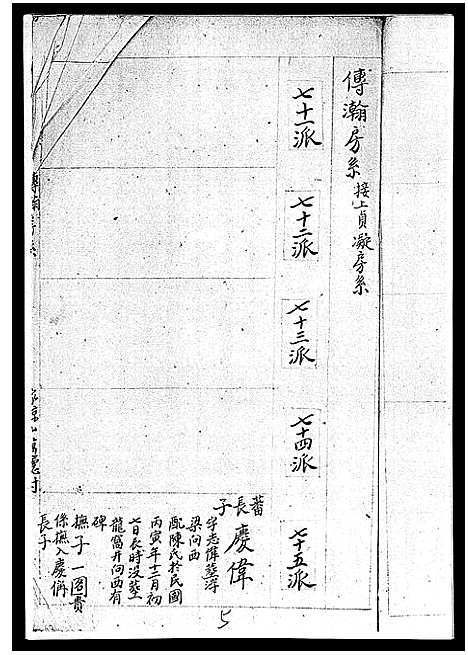 傳瀚房系接上貞凝房系
七十一派
七十二派
七十三派
七十四派
七十五派
蕃長子
慶偉
字志偉葬浮
梁向西
配陳氏於民國
丙寅年十二月初
七日辰時没葬一
龍窩开向西有
碑
撫子一圀貴
係撫入慶俩
長子
5